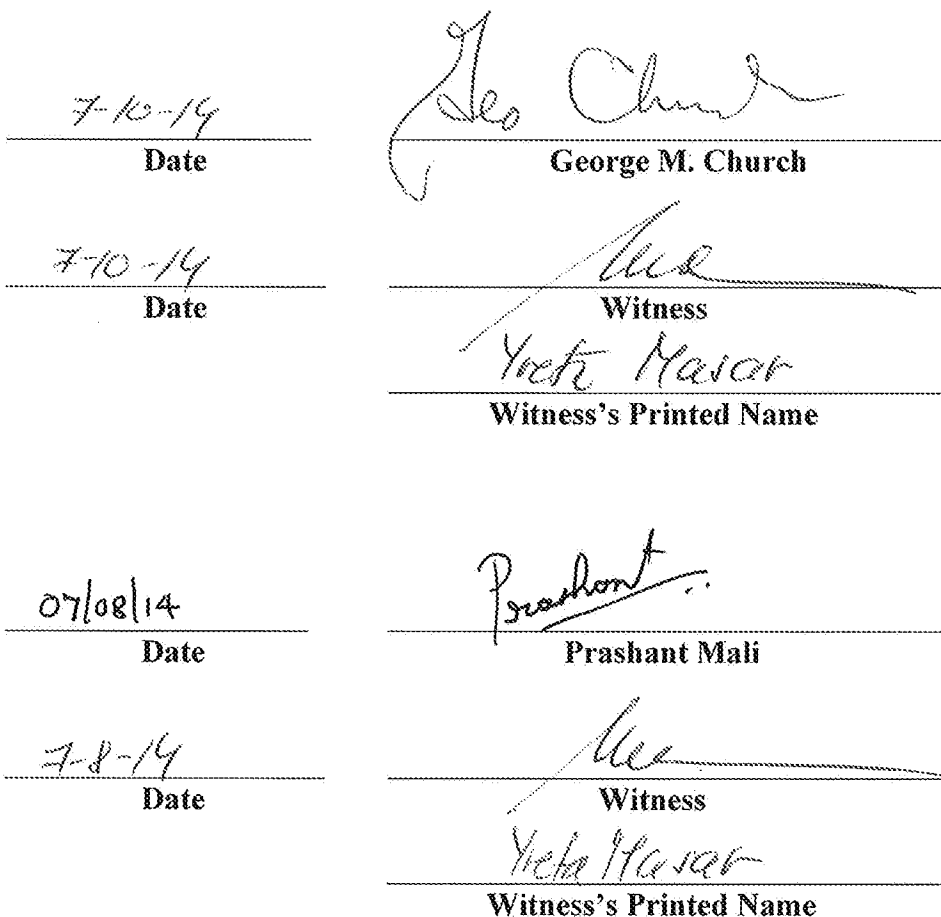 7-10-14 Geo Church
Date George M. Church
7-10-14
Date Witness
Masar
Witness's Printed Name
07/08/14 Prashant
Date Prashant Mali
7-8-14
Date Witness
Masar
Witness's Printed Name